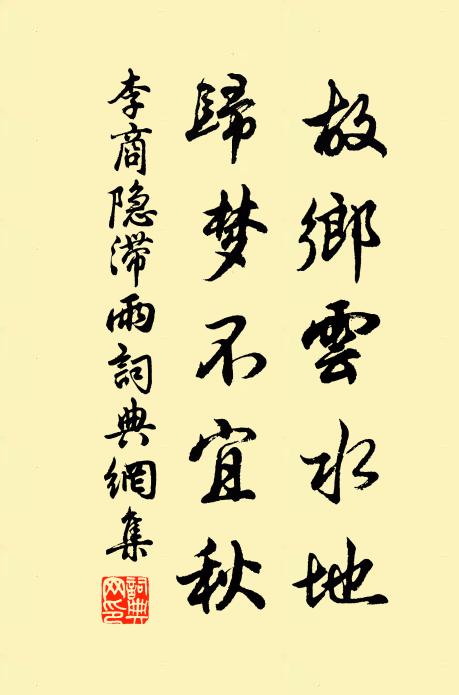 故鄉雲水地
歸梦不宜秋
李商隐滯雨詞典網集
詞典网印